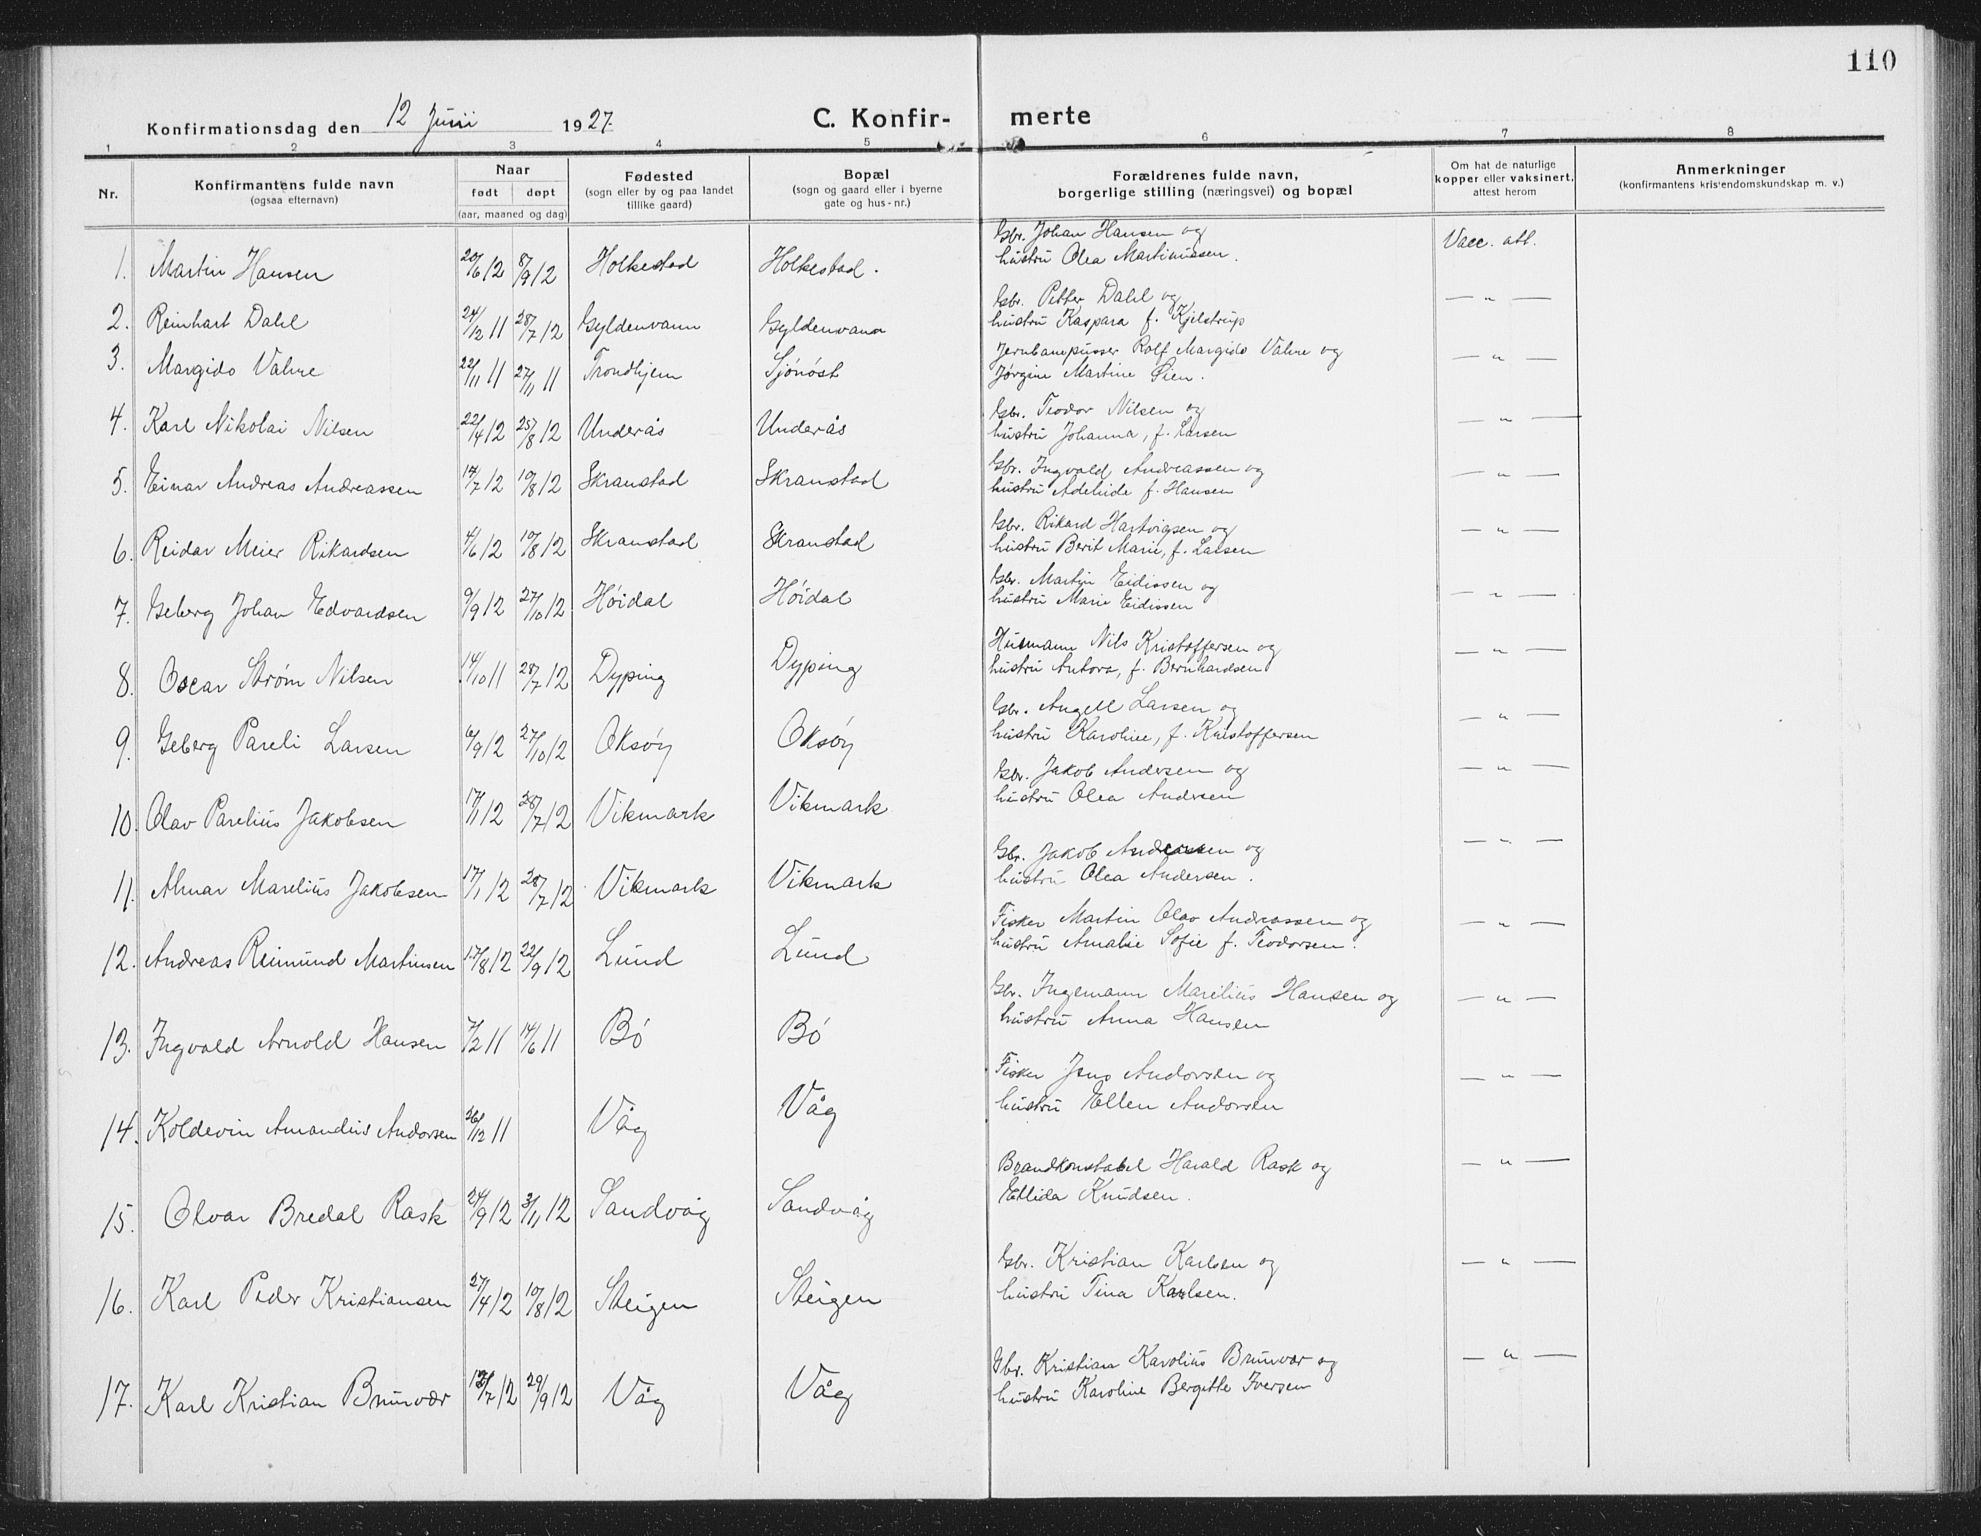 110
Konfirmationsdag den 12 Juni 1927. C. Konfirmerte
1 2 3 4 5 6 7 8
Nr. Konfirmantens fulde navn (ogsaa efternavn) Naar født døpt (aar, maaned og dag) Fødested (sogn eller by og paa landet tillike gaard) Bopæl (sogn og gaard eller i byerne gate og hus-nr.) Forældrenes fulde navn, borgerlige stilling (næringsvei) og bopæl Om hat de naturlige kopper eller vaksinert, attest herom Anmerkninger (konfirmantens kristendomskundskap m. v.)
1. Martin Hansen 20/6 12 8/9 12 Holkestad Holkestad. Gbr. Johan Hansen og
hustru Olea Martinussen. Vacc. att.
2. Reinhart Dahl 24/12 11 28/7 12 Gyldenvann Gyldenvann Gbr. Petter Dahl og
hustru Kaspara f. Kjelstrup — " —
3. Margido Valvre 22/11 11 27/11 11 Trondhjem Sjönöst Jernbanepusser Rolf Margido Valvre og
Jørgine Martine Øien. — " —
4. Karl Nikolai Nilsen 22/4 12 25/8 12 Underås Underås Gbr. Teodor Nilsen og
hustru Johanna, f. Larsen — " —
5. Einar Andreas Andreassen 14/7 12 10/8 12 Skranstad Skranstad Gbr. Ingvald Andreassen og
hustru Adelaide f. Hansen — " —
6. Reidar Meier Rikardsen 4/6 12 10/8 12 Skranstad Skranstad Gbr. Rikard Hartvigsen og
hustru Berit Marie, f. Larsen — " —
7. Geberg Johan Edvardsen 9/9 12 27/10 12 Höidal Höidal Gbr. Martin Eidissen og
hustru Marie Eidissen — " —
8. Oscar Strøm Nilsen 14/10 11 28/7 12 Dyping Dyping Husmann Nils Kristoffersen og
hustru Antora, f. Bernhardsen — " —
9. Geberg Pareli Larsen 6/9 12 27/10 12 Oksöy Oksöy Gbr. Angell Larsen og
hustru Karoline, f. Kristoffersen — " —
10. Olav Parelius Jakobsen 17/1 12 28/7 12 Vikmark Vikmark Gbr. Jakob Andersen og
hustru Olea Andersen — " —
11. Almar Marelius Jakobsen 17/1 12 28/7 12 Vikmark Vikmark Gbr. Jakob Andersen og
hustru Olea Andersen. — " —
12. Andreas Reimund Martinsen 17/8 12 22/9 12 Lund Lund Fisker Martin Olav Andreassen og
hustru Amalie Sofie f. Teodorsen. — " —
13. Ingvald Arnold Hansen 7/2 11 14/6 11 Bö Bö Gbr. Ingemann Marelius Hansen og
hustru Anna Hansen — " —
14. Koldevin Amandus Andorsen 26/12 11 Våg Våg Fisker Jens Andorsen og
hustru Ellen Andorsen — " —
15. Olvar Bredal Rask 24/9 12 3/11 12 Sandvåg Sandvåg Brandkonstabel Harald Rask og
Ellida Knudsen. — " —
16. Karl Peder Kristiansen 27/4 12 10/8 12 Steigen Steigen Gbr. Kristian Karlsen og
hustru Tina Karlsen. — " —
17. Karl Kristian Brunvær /7 12 29/9 12 Våg Våg Gbr. Kristian Karolius Brunvær og
hustru Karoline Bergitte Iversen — " —